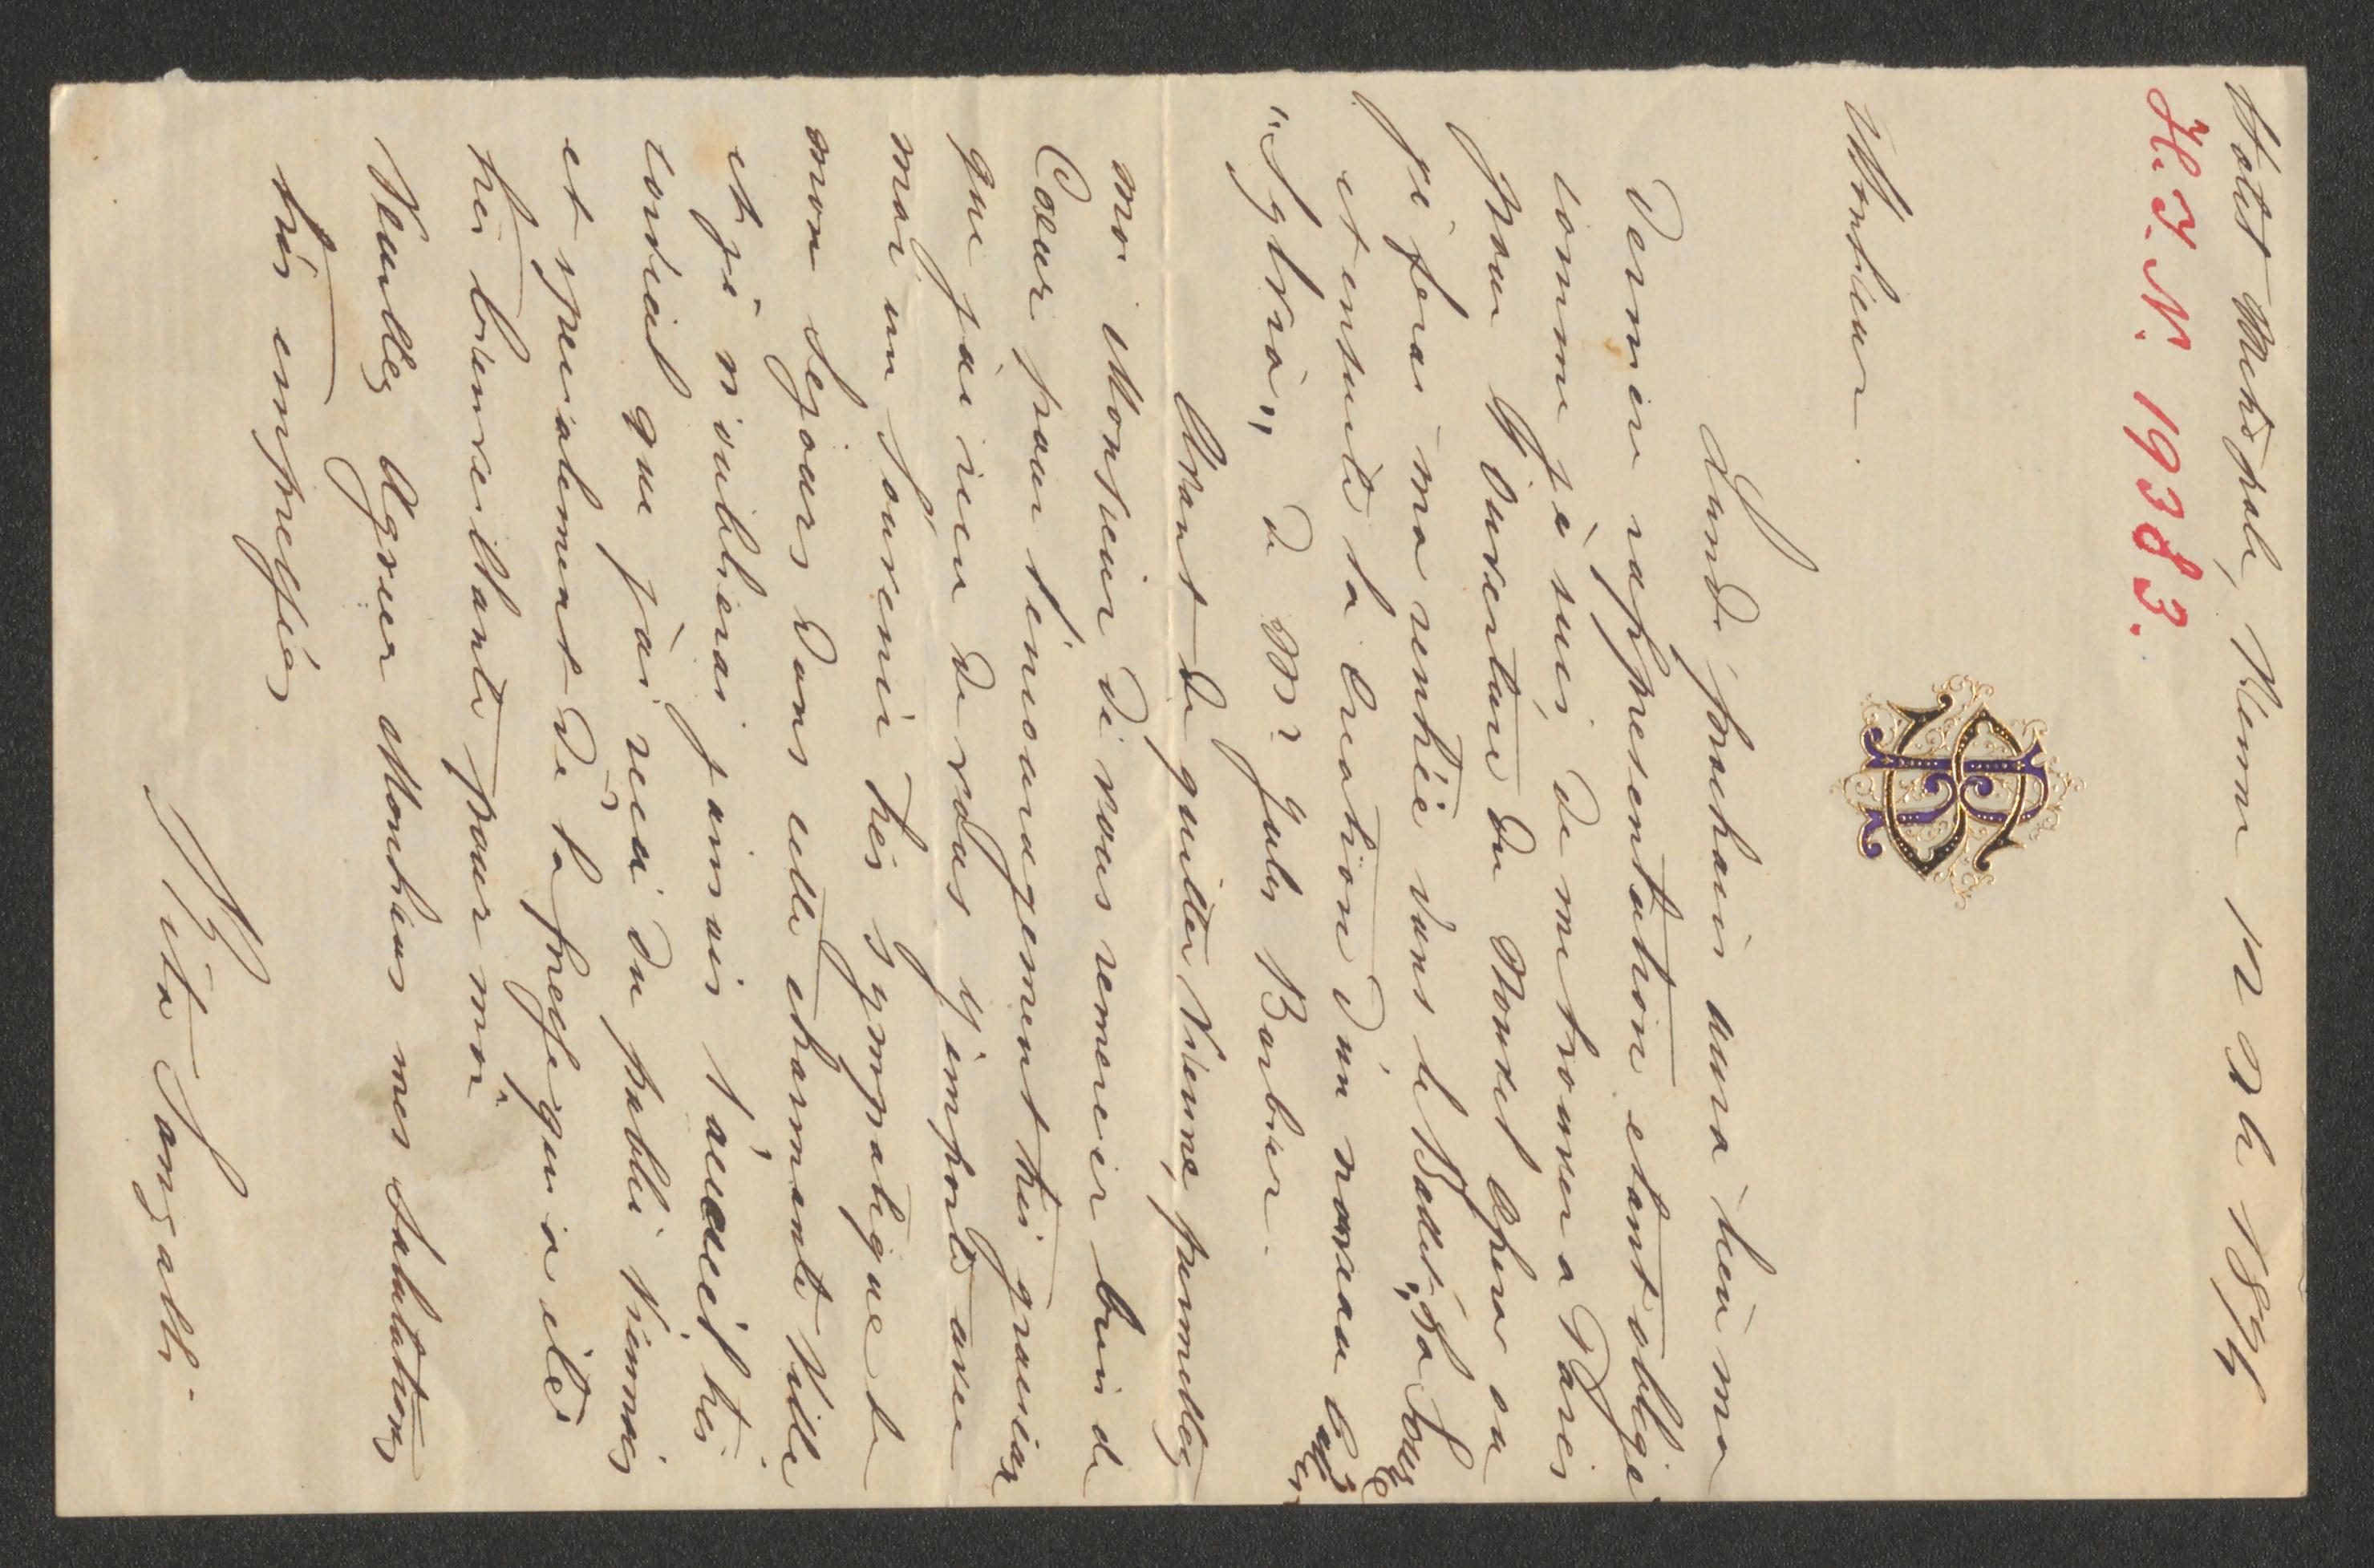 Hotel Metropole, Vienne 12 Xbr 1874
H. I. N. 19383.
Monsieur.
Lundi prochain aura lieu ma
derniere rappresentation etant obligé
comme je suis, de me trouver a Paris
pour l'ouverture du Nouvel Opera ou
je ferai ma rentrée dans le Ballet "La Source"
et ensuite la creation d'un noveau Ballet
"Sylvia" de Mr Jules Barbier.
Avant de quitter Vienne, permettez
moi Monsieur de vous remercier bien de
Coeur pour l'encouragement très gracieux
que j'ai reçu de vous, j'emporte avec
moi un souvenir très sympatique de
mon sejours dans cette charmante Ville
et je n'oublierai jamais l'accueil très
cordial que j'ai reçu du public Viennois
et specialment de la presse qui a eté
très bienveillante pour moi
Veuillez Agreer Monsieur mes Salutations
très empressées
Rita Sangalli.